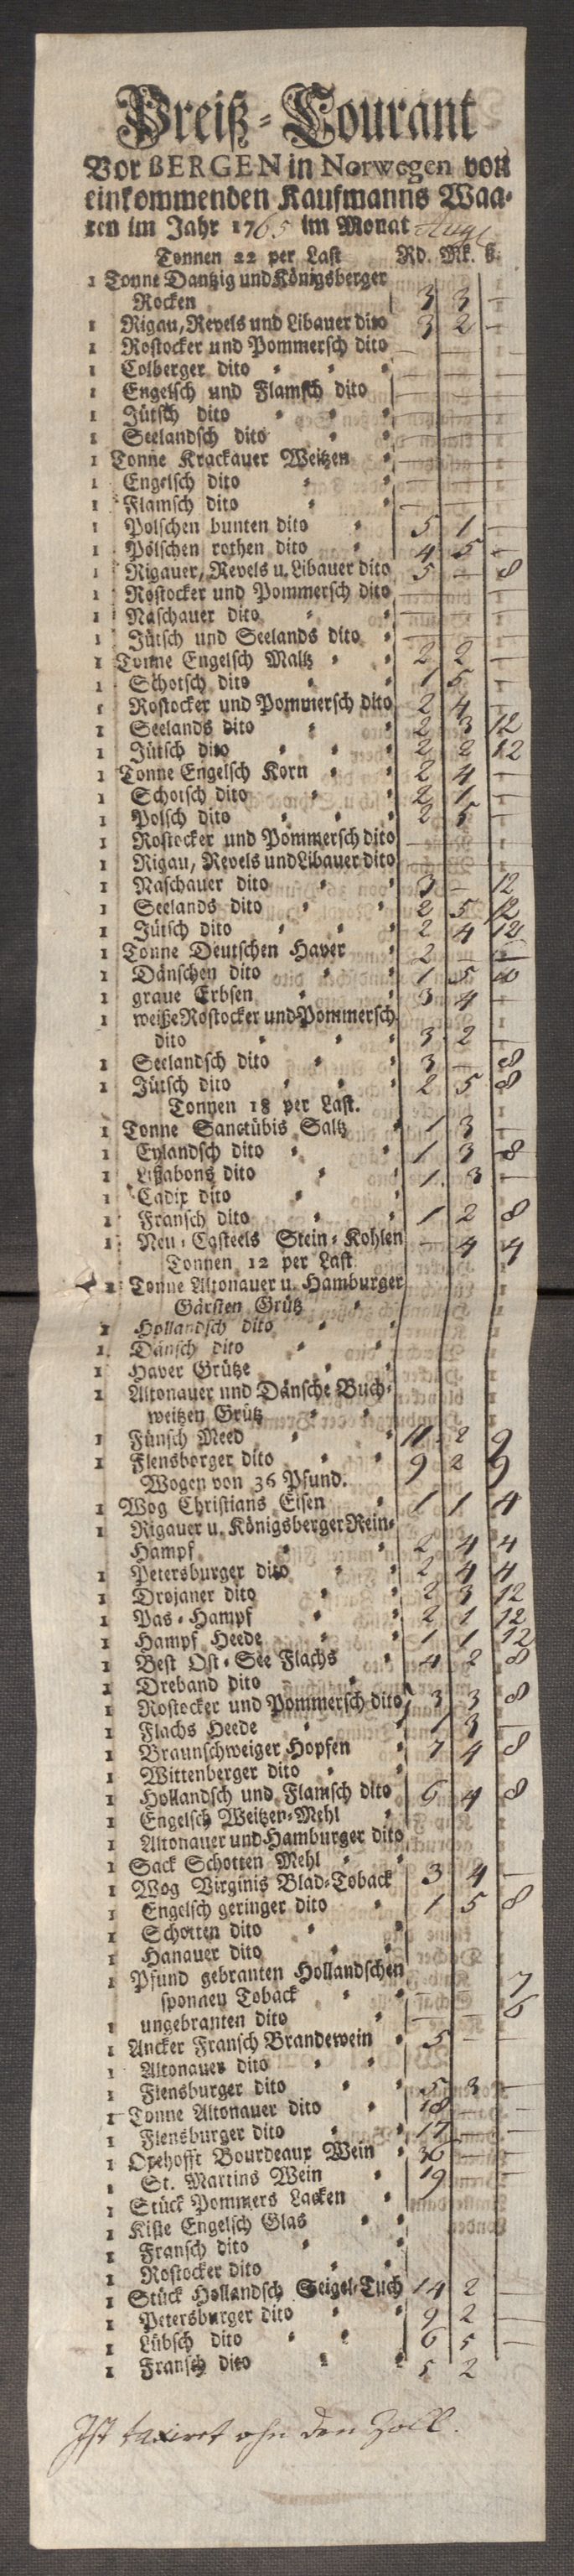 Preiß-Courant
Vor BERGEN in Norwegen von
einkommenden Kaufmanns Waa-
ren im Jahr 1765 im Monat Aug
Tonnen 22 per Last Rd. Mk. ß.
1 Tonne Dantzig und Königsberger
Rocken 3 3 —
1 Rigau, Revels und Libauer dito 3 2 —
1 Rostocker und Pommersch dito — — —
1 Colberger dito — — —
1 Engelsch und Flamsch dito — — —
1 Jütsch dito — — —
1 Seelandsch dito — — —
1 Tonne Krackauer Weitzen — — —
1 Engelsch dito — — —
1 Flamsch dito — — —
1 Polschen bunten dito 5 1 —
1 Polschen rothen dito 4 5 —
1 Rigauer, Revels u. Libauer dito 5 — 8
1 Rostocker und Pommersch dito — — —
1 Naschauer dito — — —
1 Jütsch und Seelands dito — — —
1 Tonne Engelsch Maltz 2 2 —
1 Schotsch dito 1 5 —
1 Rostocker und Pommersch dito 2 4 —
1 Seelands dito 2 3 12
1 Jütsch dito 2 2 12
1 Tonne Engelsch Korn 2 4 —
1 Schotsch dito 2 1 —
1 Polsch dito 2 5 —
1 Rostocker und Pommersch dito — — —
1 Rigau, Revels und Libauer dito — — —
1 Naschauer dito 3 — 12
1 Seelands dito 2 5 12
1 Jütsch dito 2 4 12
1 Tonne Deutschen Haver 2 — —
1 Dänschen dito 1 5 8
1 graue Erbsen 3 4 —
1 weiße Rostocker und Pommersch
dito 3 2 —
1 Seelandsch dito 3 — 8
1 Jütsch dito 2 5 8
Tonnen 18 per Last.
1 Tonne Sanctübis Saltz 1 3 —
1 Eylandsch dito 1 3 8
1 Lißabons dito 1 3 —
1 Cadix dito
1 Fransch dito 1 2 8
1 Neu-Casteels Stein-Kohlen — 4 4
Tonnen 12 per Last
1 Tonne Altonauer u. Hamburger
Gärsten Grütz
1 Hollandsch dito
1 Dänsch dito
1 Haver Grütze
1 Altonauer und Dänsche Buch-
weitzen Grütz
1 Fünsch Meed 11 2 9
1 Flensborger dito 9 2 9
Wogen von 36 Pfund.
1 Wog Christians Eisen 1 1 4
1 Rigauer u. Königsberger Rein-
Hampf 2 4 4
1 Petersburger dito 2 4 4
1 Drojaner dito 2 3 12
1 Pas-Hampf 2 1 12
1 Hampf Heede 1 1 12
1 Best Ost-See Flachs 4 2 8
1 Dreband dito
1 Rostocker und Pommersch dito 3 3 8
1 Flachs Heede 1 3 —
1 Braunschweiger Hopfen 7 4 8
1 Wittenberger dito
1 Hollandsch und Flamsch dito 6 4 8
1 Engelsch Weitzen-Mehl
1 Altonauer und Hamburger dito
1 Sack Schotten Mehl
1 Wog Virginis Blad-Toback 3 4 —
1 Engelsch geringer dito 1 5 8
1 Schotten dito
1 Hanauer dito
1 Pfund gebranten Hollandschen
sponnen Toback — — 7
1 ungebranten dito — — 6
1 Ancker Fransch Brandewein 5 — —
1 Altonauer dito
1 Flensburger dito 5 3 —
1 Tonne Altonauer dito 18 — —
1 Flensburger dito 17 — —
1 Oxehofft Bourdeaux Wein 36 — —
1 St. Martins Wein 19 —
1 Stück Pommers Lacken
1 Kiste Engelsch Glas
1 Fransch dito
1 Rostocker dito
1 Stück Hollandsch Seigel-Tuch 14 2 —
1 Petersburger dito 9 2 —
1 Lübsch dito 6 5 —
1 Fransch dito 5 2
Ist taxiret ohn den Zoll.